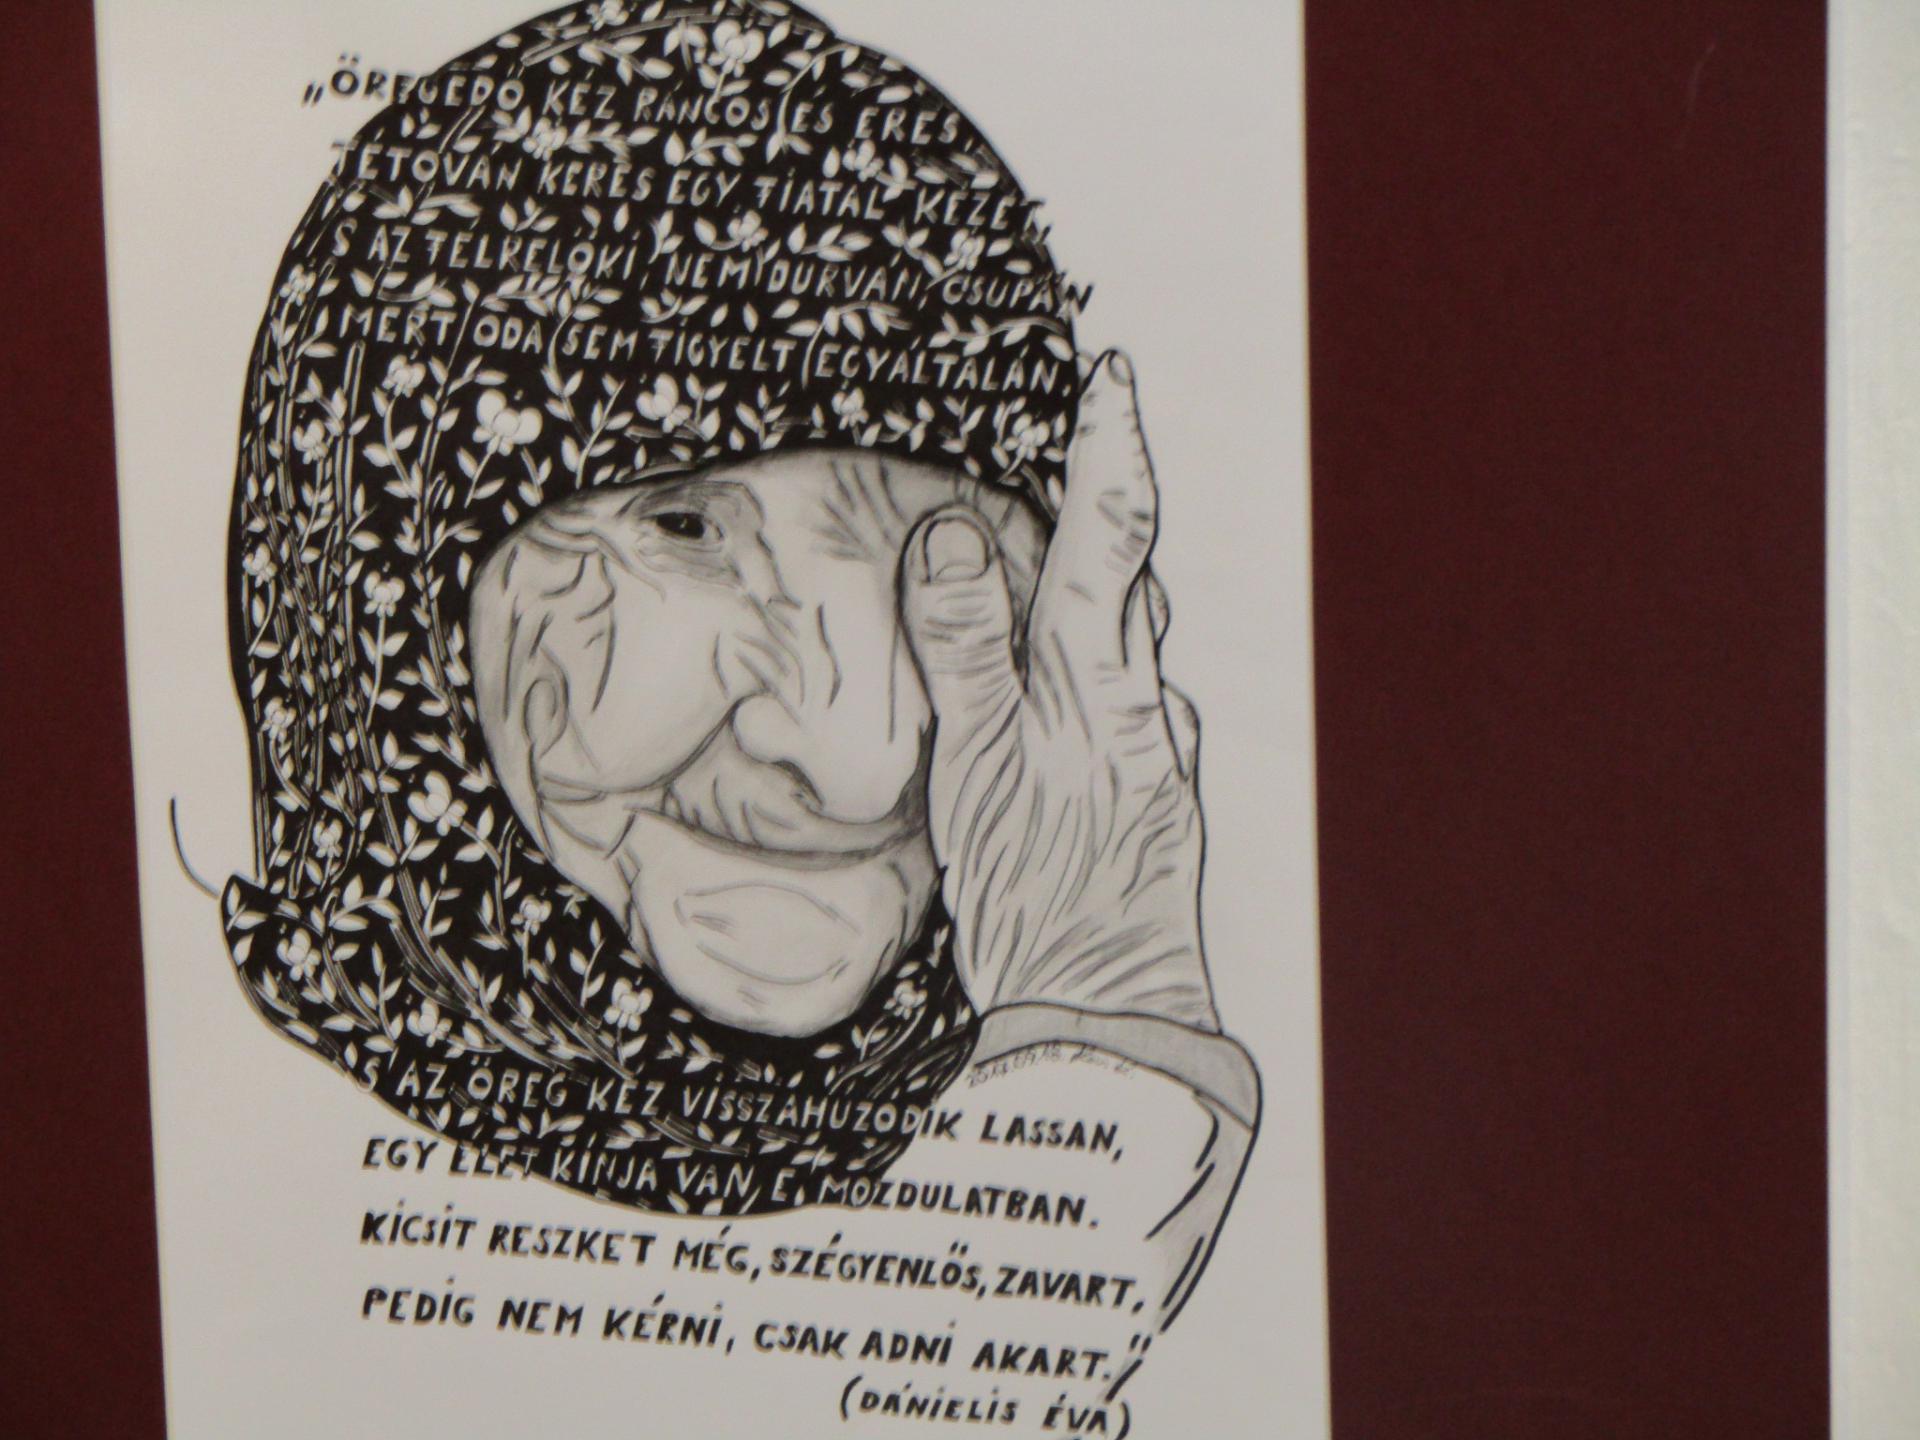 „ÖREGEDŐ KÉZ RÁNCOS ÉS ERES,
TÉTOVÁN KERES EGY FIATAL KEZET,
S AZ FÉLRELÖKI, NEM DURVÁN, CSUPÁN
MERT ODA SEM FIGYELT EGYÁLTALÁN.
S AZ ÖREG KÉZ VISSZAHÚZÓDIK LASSAN,
EGY ÉLET KÍNJA VAN E MOZDULATBAN.
KICSIT RESZKET MÉG, SZÉGYENLŐS, ZAVART,
PEDIG NEM KÉRNI, CSAK ADNI AKART."
(DÁNIELIS ÉVA)